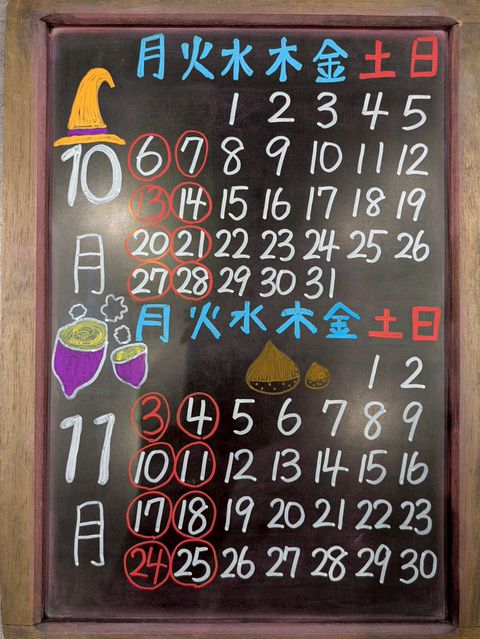 月 火 水 木 金 土 日
1 2 3 4 5
10月
6 7 8 9 10 11 12
13 14 15 16 17 18 19
20 21 22 23 24 25 26
27 28 29 30 31
月 火 水 木 金 土 日
1 2
11月
3 4 5 6 7 8 9
10 11 12 13 14 15 16
17 18 19 20 21 22 23
24 25 26 27 28 29 30